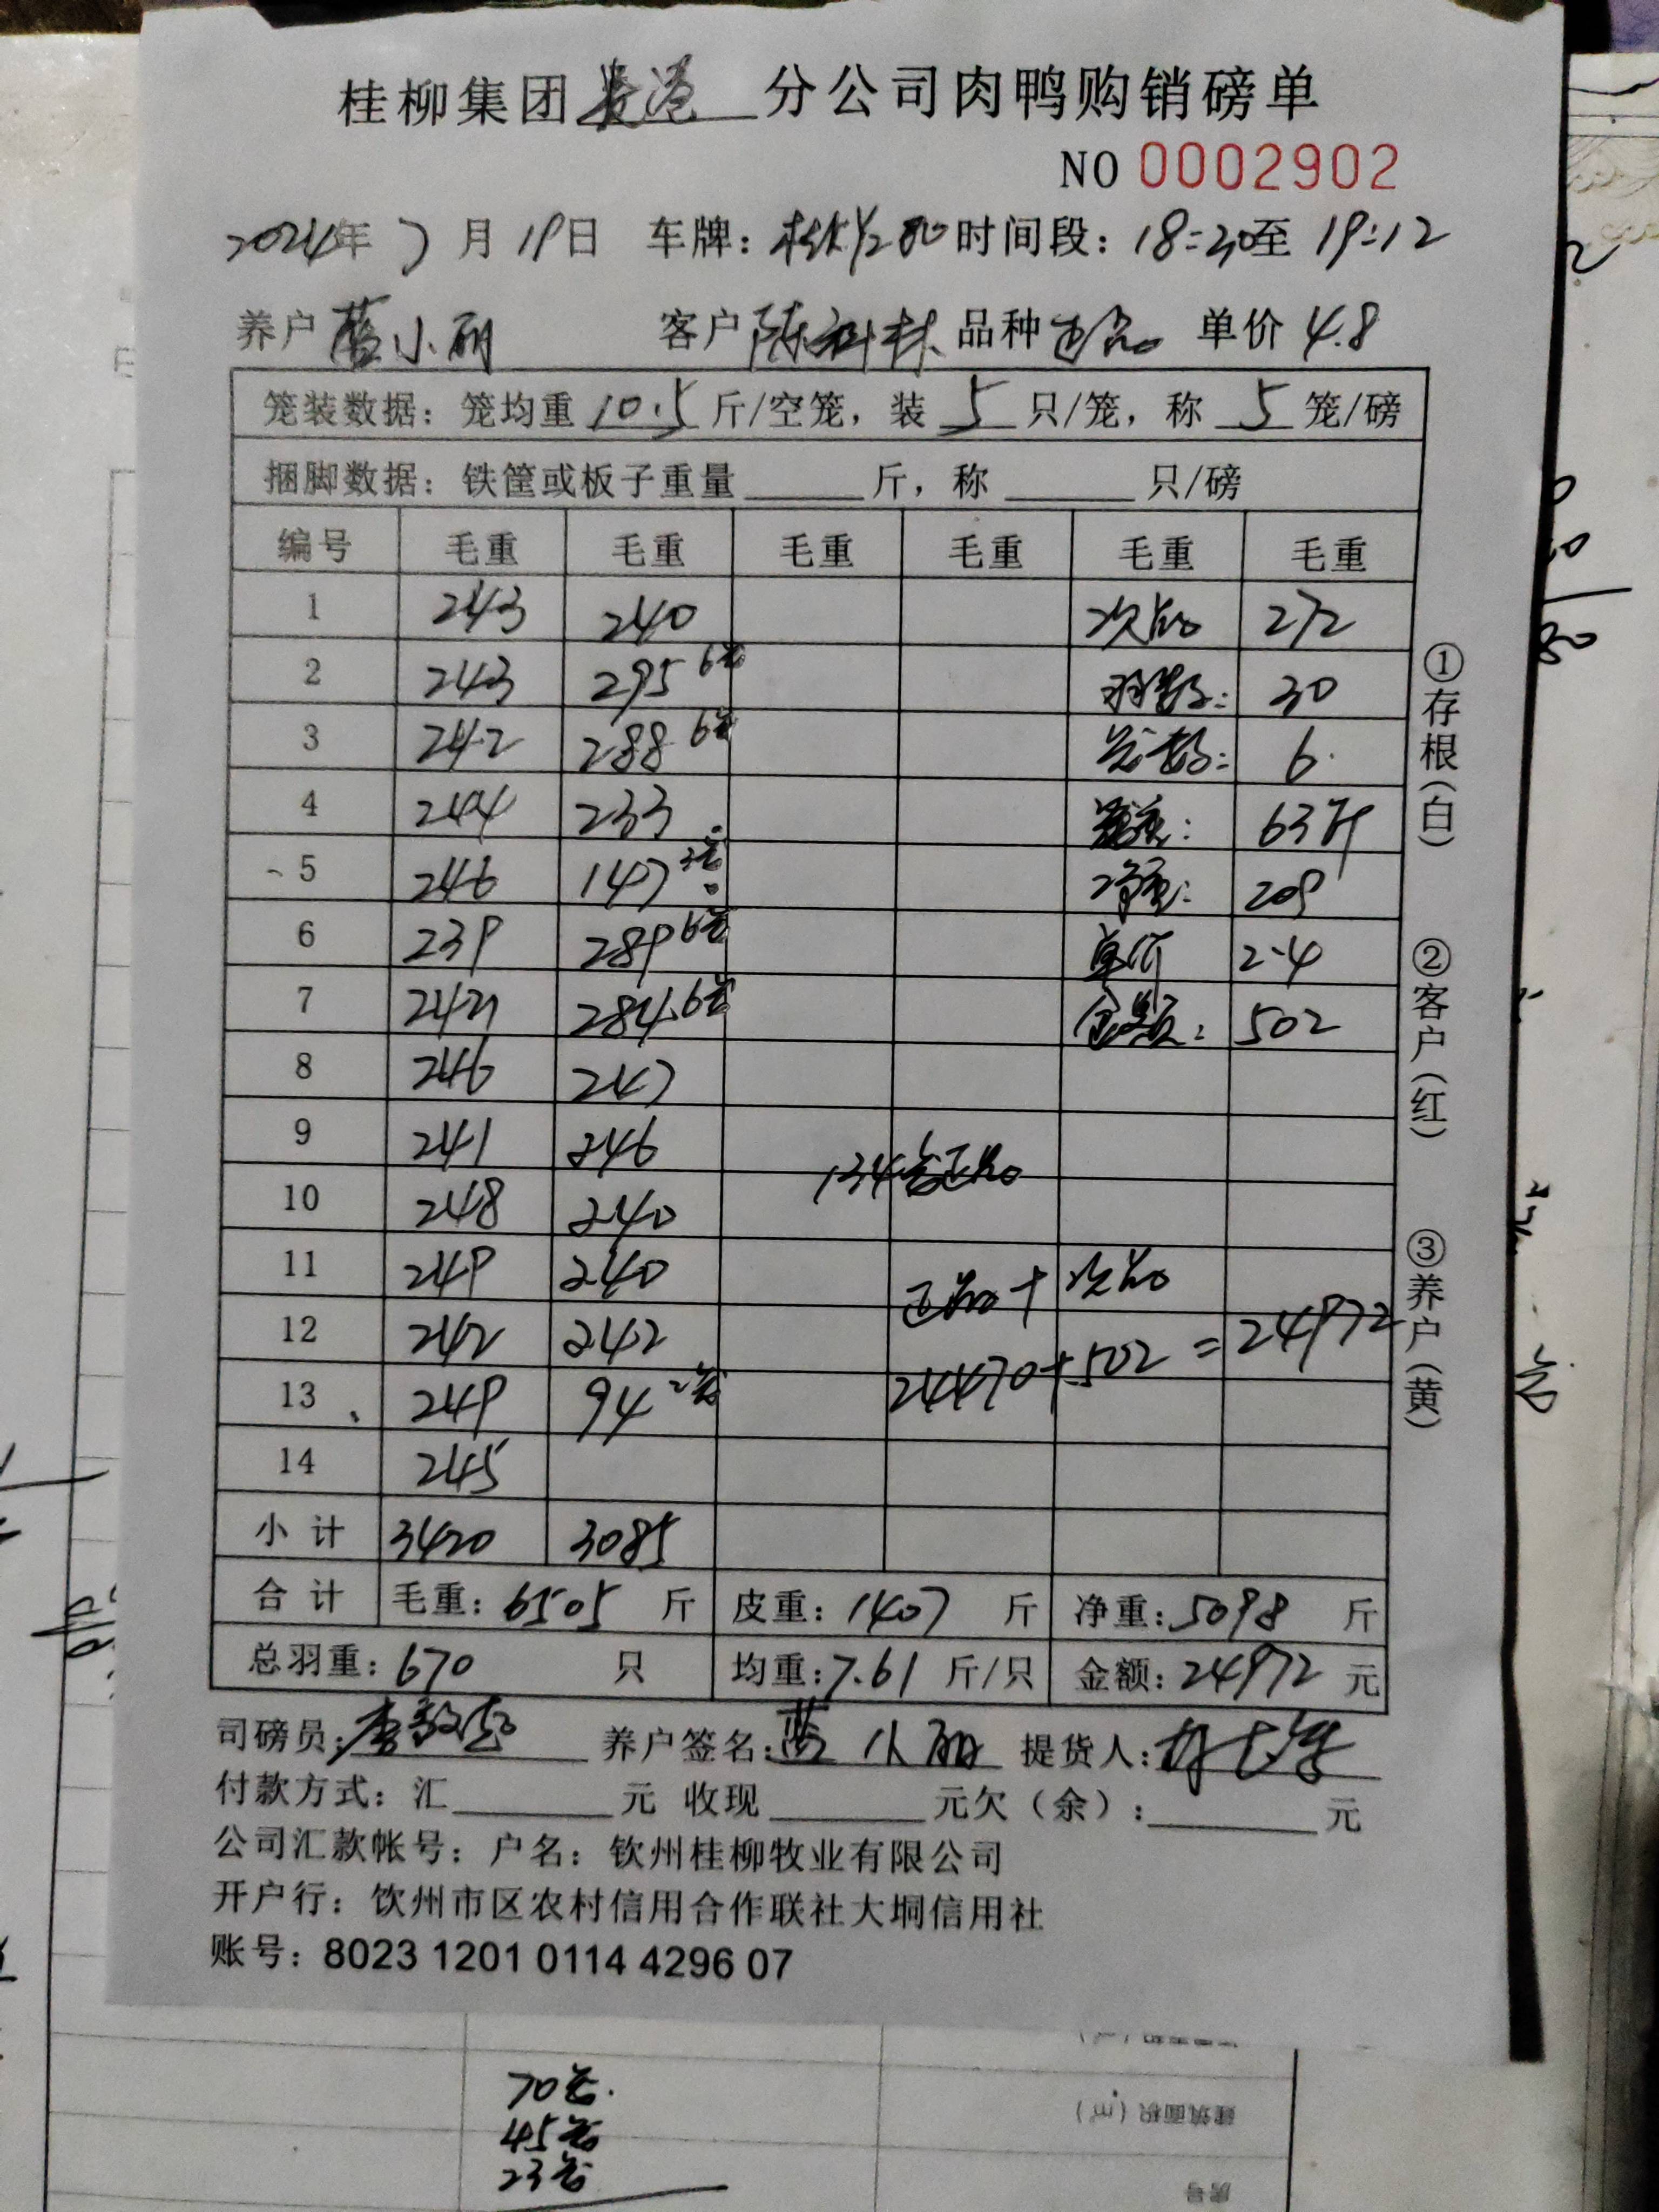 桂柳集团贵港分公司肉鸭购销磅单
NO 0002902
2024年7月19日 车牌: 时间段: 18:30至 19:12
养户 蓝小丽 客户 品种 正品 单价 4.8
笼装数据: 笼均重 10.5 斤/空笼, 装 5 只/笼, 称 5 笼/磅
捆脚数据: 铁筐或板子重量 ______ 斤, 称 ______ 只/磅
编号 毛重 毛重 毛重 毛重 毛重 毛重
1 243 240 次品 272
2 243 295 6笼 羽数: 30
3 242 288 6笼 笼数: 6
4 244 233 笼重: 63斤
5 246 147 3笼 净重: 209
6 239 289 6笼 单价 2.4
7 243 284 6笼 金额: 502
8 246 247
9 241 246
134笼正品
10 248 240
11 249 240 正品 + 次品
12 242 242 24470+502=24972
13 249 94 2笼
14 245
小计 3420 3085
合计 毛重: 6505 斤 皮重: 1407 斤 净重: 5098 斤
总羽重: 670 只 均重: 7.61 斤/只 金额: 24972 元
司磅员: 养户签名: 蓝小丽 提货人:
付款方式: 汇______元 收现______元欠（余）:______元
公司汇款帐号: 户名: 钦州桂柳牧业有限公司
开户行: 饮州市区农村信用合作联社大垌信用社
账号: 8023 1201 0114 4296 07
①存根(白) ②客户(红) ③养户(黄)
70笼.
45笼
23笼
建筑面积（㎡）
房号